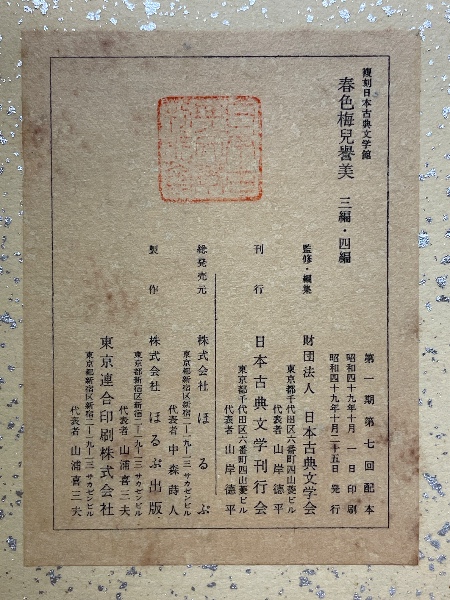 複刻日本古典文学館
春色梅兒譽美 三編・四編
第一期第七回配本
昭和四十九年十月 一日印刷
昭和四十九年十月二十五日 発行
監修・編集 財団法人 日本古典文学会
東京都千代田区六番町四山菱ビル
代表者 山岸徳平
刊行 日本古典文学刊行会
東京都千代田区六番町四山菱ビル
代表者 山岸徳平
総発売元 株式会社 ほるぷ
東京都新宿区新宿二―一九―一三 サカゼンビル
代表者 中森蒔人
製作 株式会社 ほるぷ出版
東京都新宿区新宿二―一九―一三 サカゼンビル
代表者 山浦喜三夫
東京連合印刷株式会社
東京都新宿区新宿二―一九―一三 サカゼンビル
代表者 山浦喜三夫